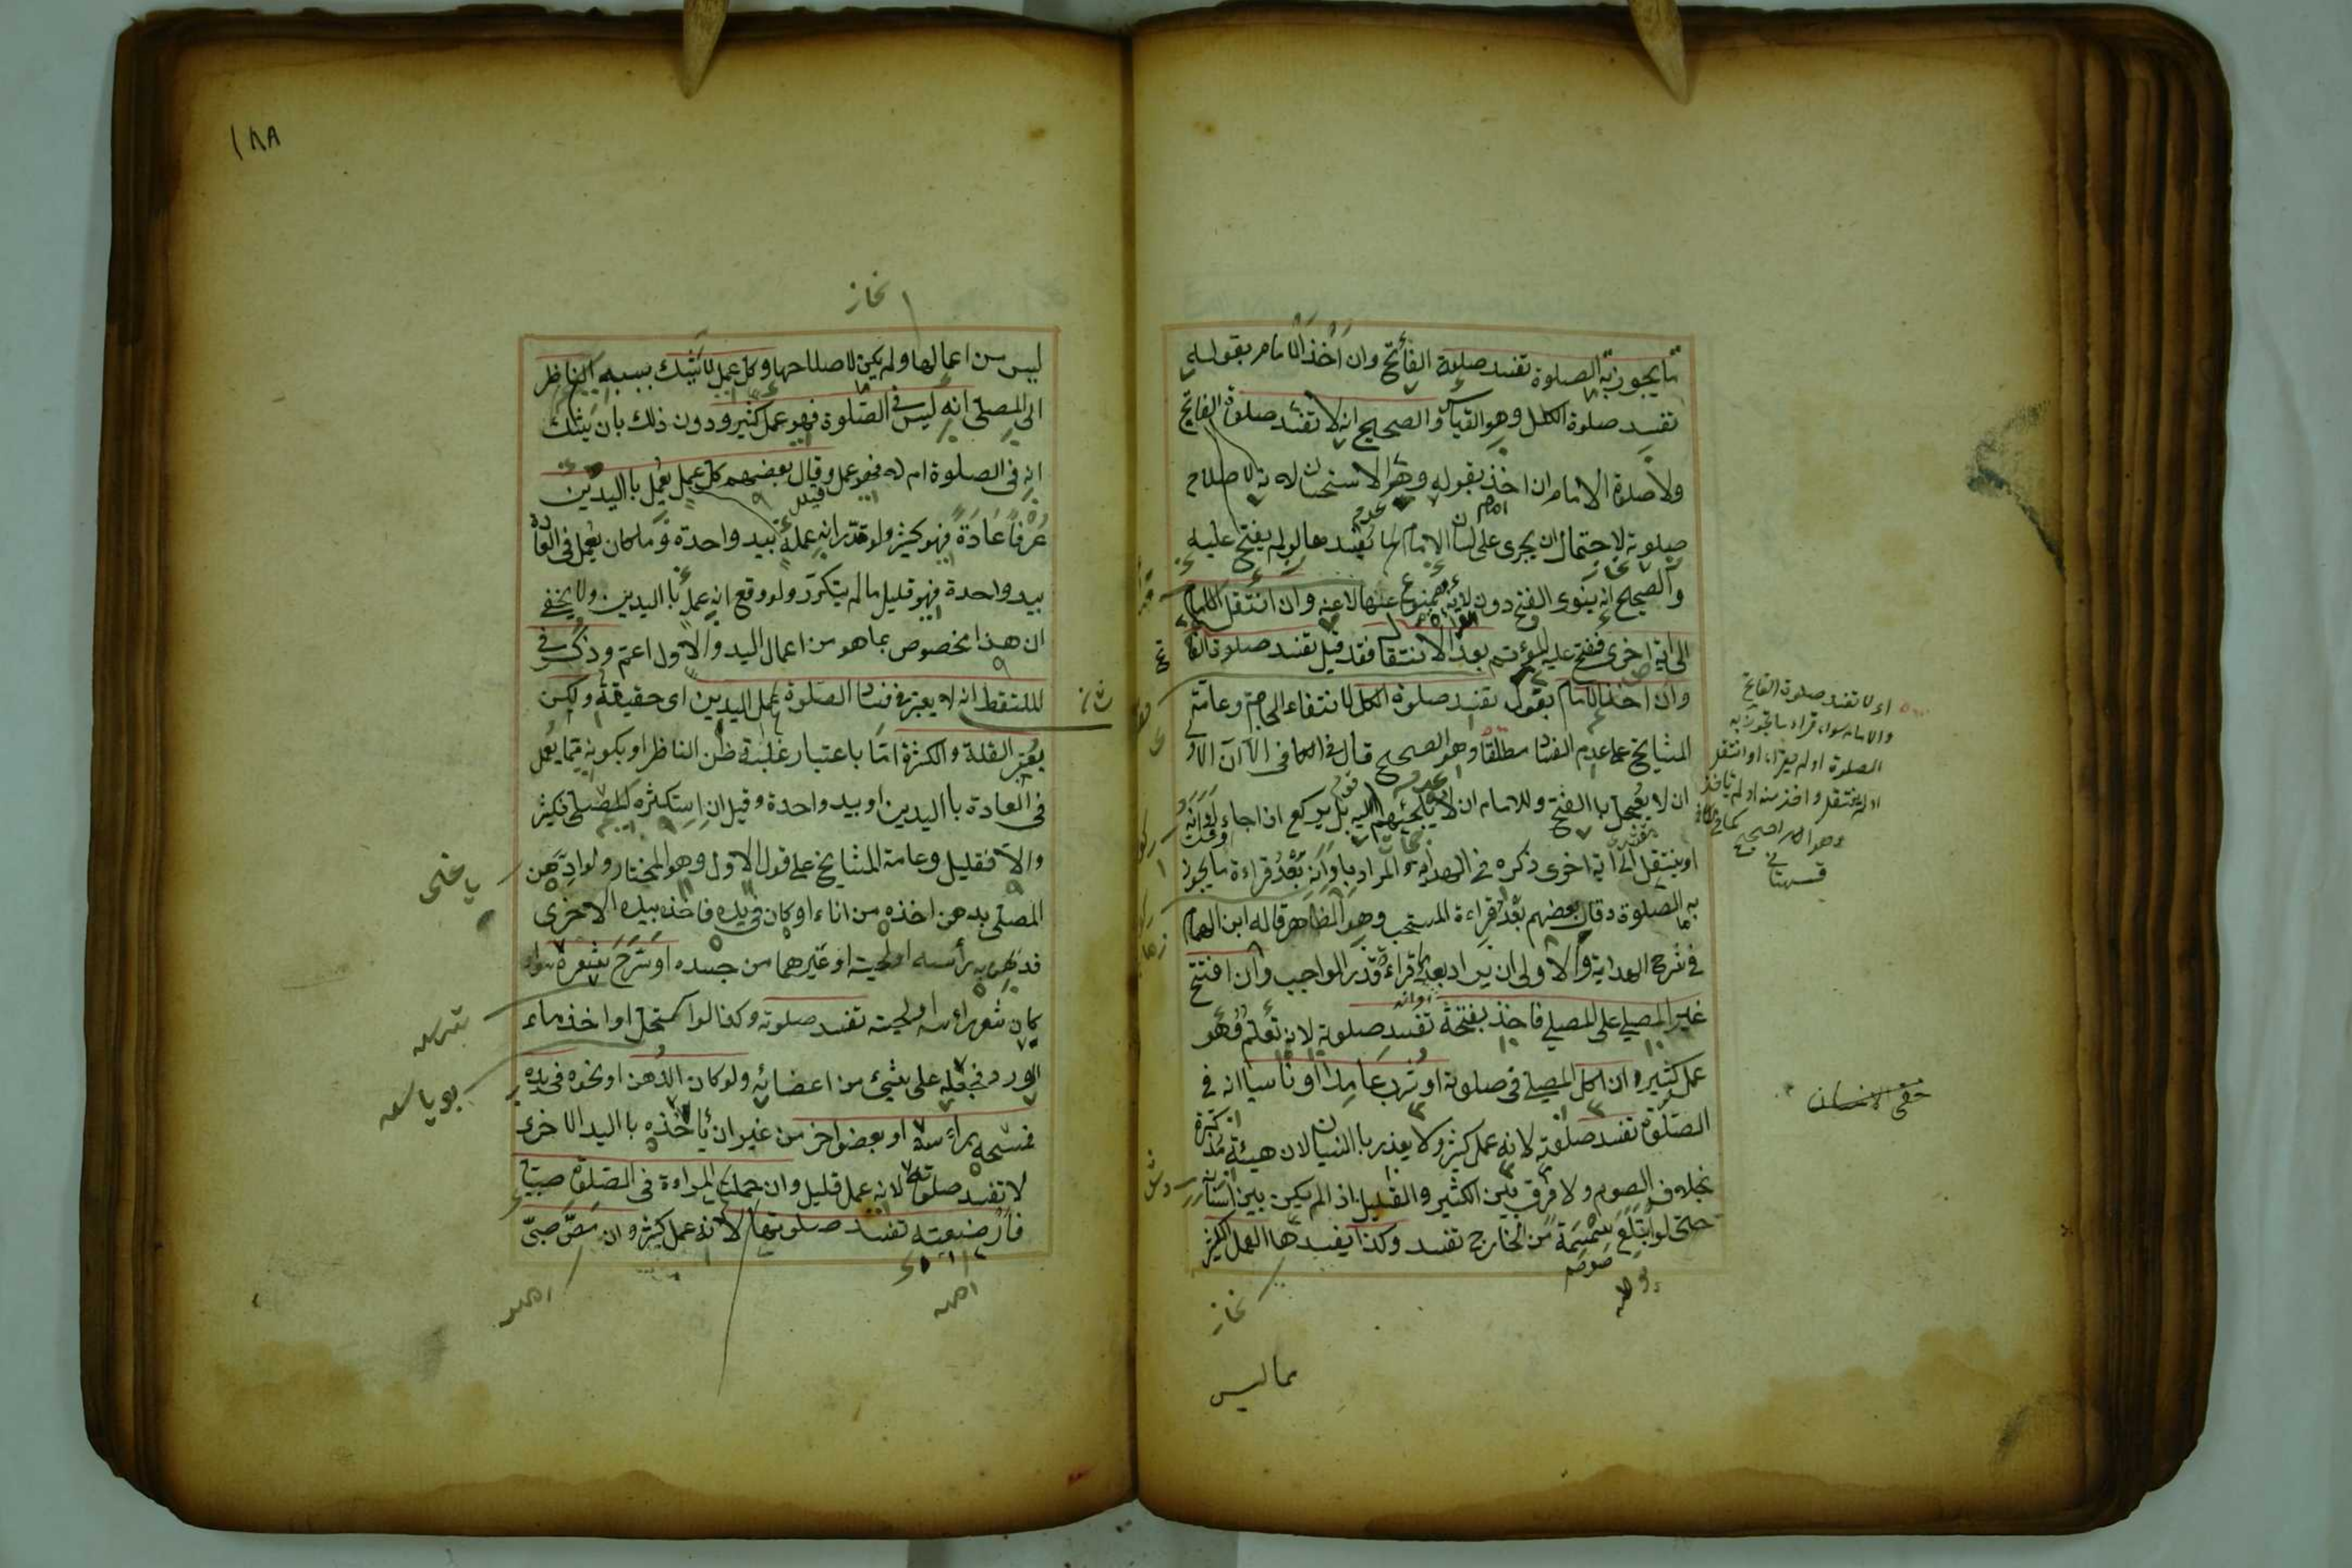 ما يجوز به الصلوة تفسد صلوة الفاتح وان اخذ الامام بقوله
تفسد صلوة الكل وهو القياس والصحيح انه لا تفسد صلوة الفاتح
ولا صلوة الامام ان اخذ بقوله وهو الاستحسان لانه لاصلاح
صلوته لاحتمال ان يجرى على لسان الامام ما يفسدها لو لم يفتح عليه
والصحيح انه ينوى الفتح دون لانه ممنوع عنها لا عنه وان انتقل الامام
الى اية اخرى ففتح عليه المؤتم بعد الانتقال فقد قيل تفسد صلوة الفا
وان اخذ الامام بقوله تفسد صلوة الكل لانتفاء الحاجة وعامة
المشايخ على عدم الفساد مطلقا وهو الصحيح قال فى الكافى الا ان الاو
ان لا يعجل بالفتح وللامام ان لا يلجئهم اليه بل يركع اذا جاء اوانه
او ينتقل الى اية اخرى ذكره فى الهداية المراد باوانه بعد قراءة ما يجوز
به الصلوة وقال بعضهم بعد قراءة المستحب وهو الظاهر قاله ابن الهمام
فى شرح الهداية والاولى ان يراد بعد قراءة قدر الواجب وان افتتح
غير المصلى على المصلى فاخذ بفتحه تفسد صلوته لانه تعلم فهو
عمل كثير وان اكل المصلى فى صلوته او شرب عامدا او ناسيا انه فى
الصلوة تفسد صلوته لانه عمل كثير ولا يعذر بالنسيان لان هيئة مذكرة
بخلاف الصوم ولا فرق بين الكثير والقليل اذا لم يكن بين اسنانه
حتى لو ابتلع سمسمة من الخارج تفسد وكذا يفسدها العمل الكثير
مما ليس
اى لا تفسد صلوة الفاتح
والامام سواء قراء ما تجوز به
الصلوة او لم يقراء او انتقل
او لم ينتقل واخذ منه او لم ياخذ
وهو الاصح كما فى
قهستانى
١٨٨
ليس من اعمالها ولم يكن لاصلاحها وكل عمل لا يشك بسببه الناظر
الى المصلى انه ليس فى الصلوة فهو عمل كثير ودون ذلك بان يشك
انه فى الصلوة ام لا فهو عمل قليل وقال بعضهم كل عمل يعمل باليدين
عرفا عادة فهو كثير ولو قدر انه عمله بيد واحدة وما كان يعمل فى العادة
بيد واحدة فهو قليل ما لم يتكرر ولو وقع انه عمل باليدين ولا يخفى
ان هذا مخصوص بما هو من اعمال اليد والاول اعم وذكر فى
الملتقط انه لا يعتبر فى فساد الصلوة عمل اليدين اى حقيقة ولكن
يعتبر القلة والكثرة اما باعتبار غلبة ظن الناظر او بكونه مما يعمل
فى العادة باليدين او بيد واحدة وقيل ان استكثره المصلى فكثير
والا فقليل وعامة المشايخ على قول الاول وهو المختار ولو ادهن
المصلى بدهن اخذه من اناء او كان فى يده فاخذه بيده الاخرى
فدهن به رأسه او لحيته او غيرهما من جسده او سرح شعره سواء
كان شعر رأسه او لحيته تفسد صلوته وكذا لو اكتحل او اخذ ماء
الورد فجعله على شئ من اعضائه ولو كان الدهن او نحوه فى يده
فمسحه برأسه او بعضو اخر من غير ان يأخذه باليد الاخرى
لا تفسد صلوته لانه عمل قليل وان حملت المراءة فى الصلوة صبيا
فارضعته تفسد صلوتها لانه عمل كثير وان مص صبى